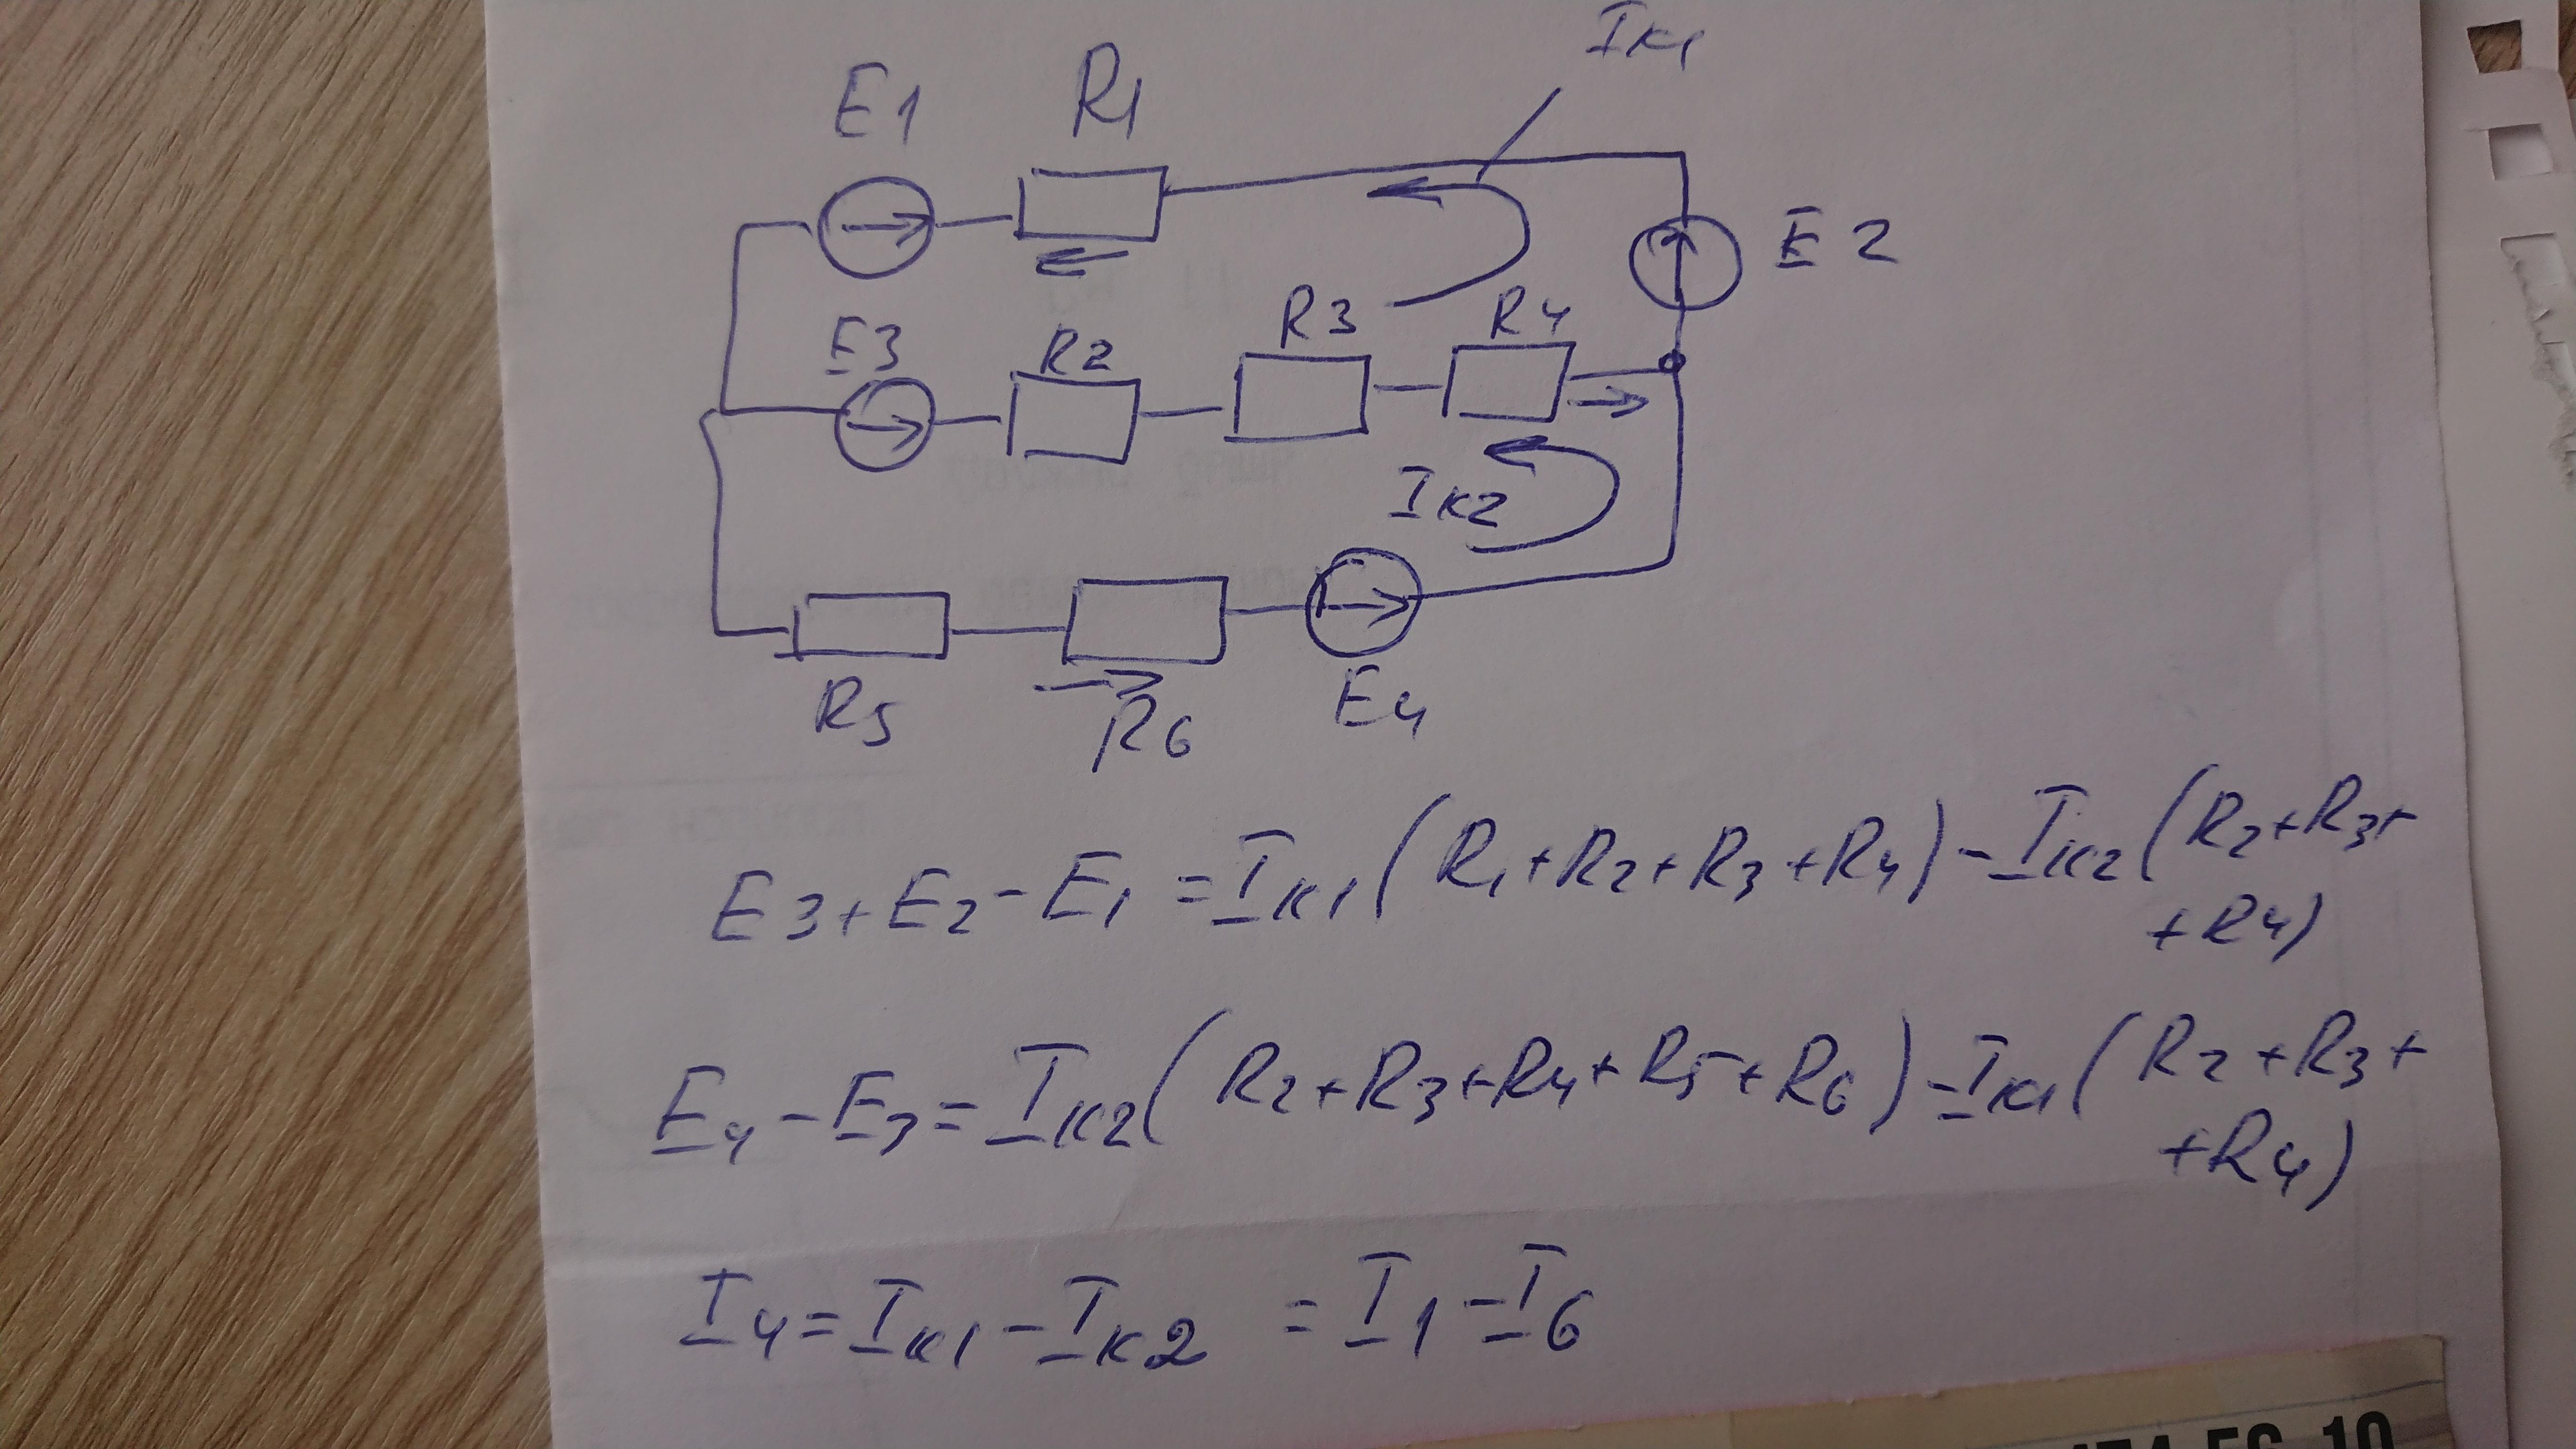 Iк1
E1 R1
E2
E3 R2 R3 R4
Iк2
R5 R6 E4
E3+E2-E1=Iк1(R1+R2+R3+R4)-Iк2(R2+R3+
+R4)
E4-E3=Iк2(R2+R3+R4+R5+R6)-Iк1(R2+R3+
+R4)
I4=Iк1-Iк2 =I1-I6